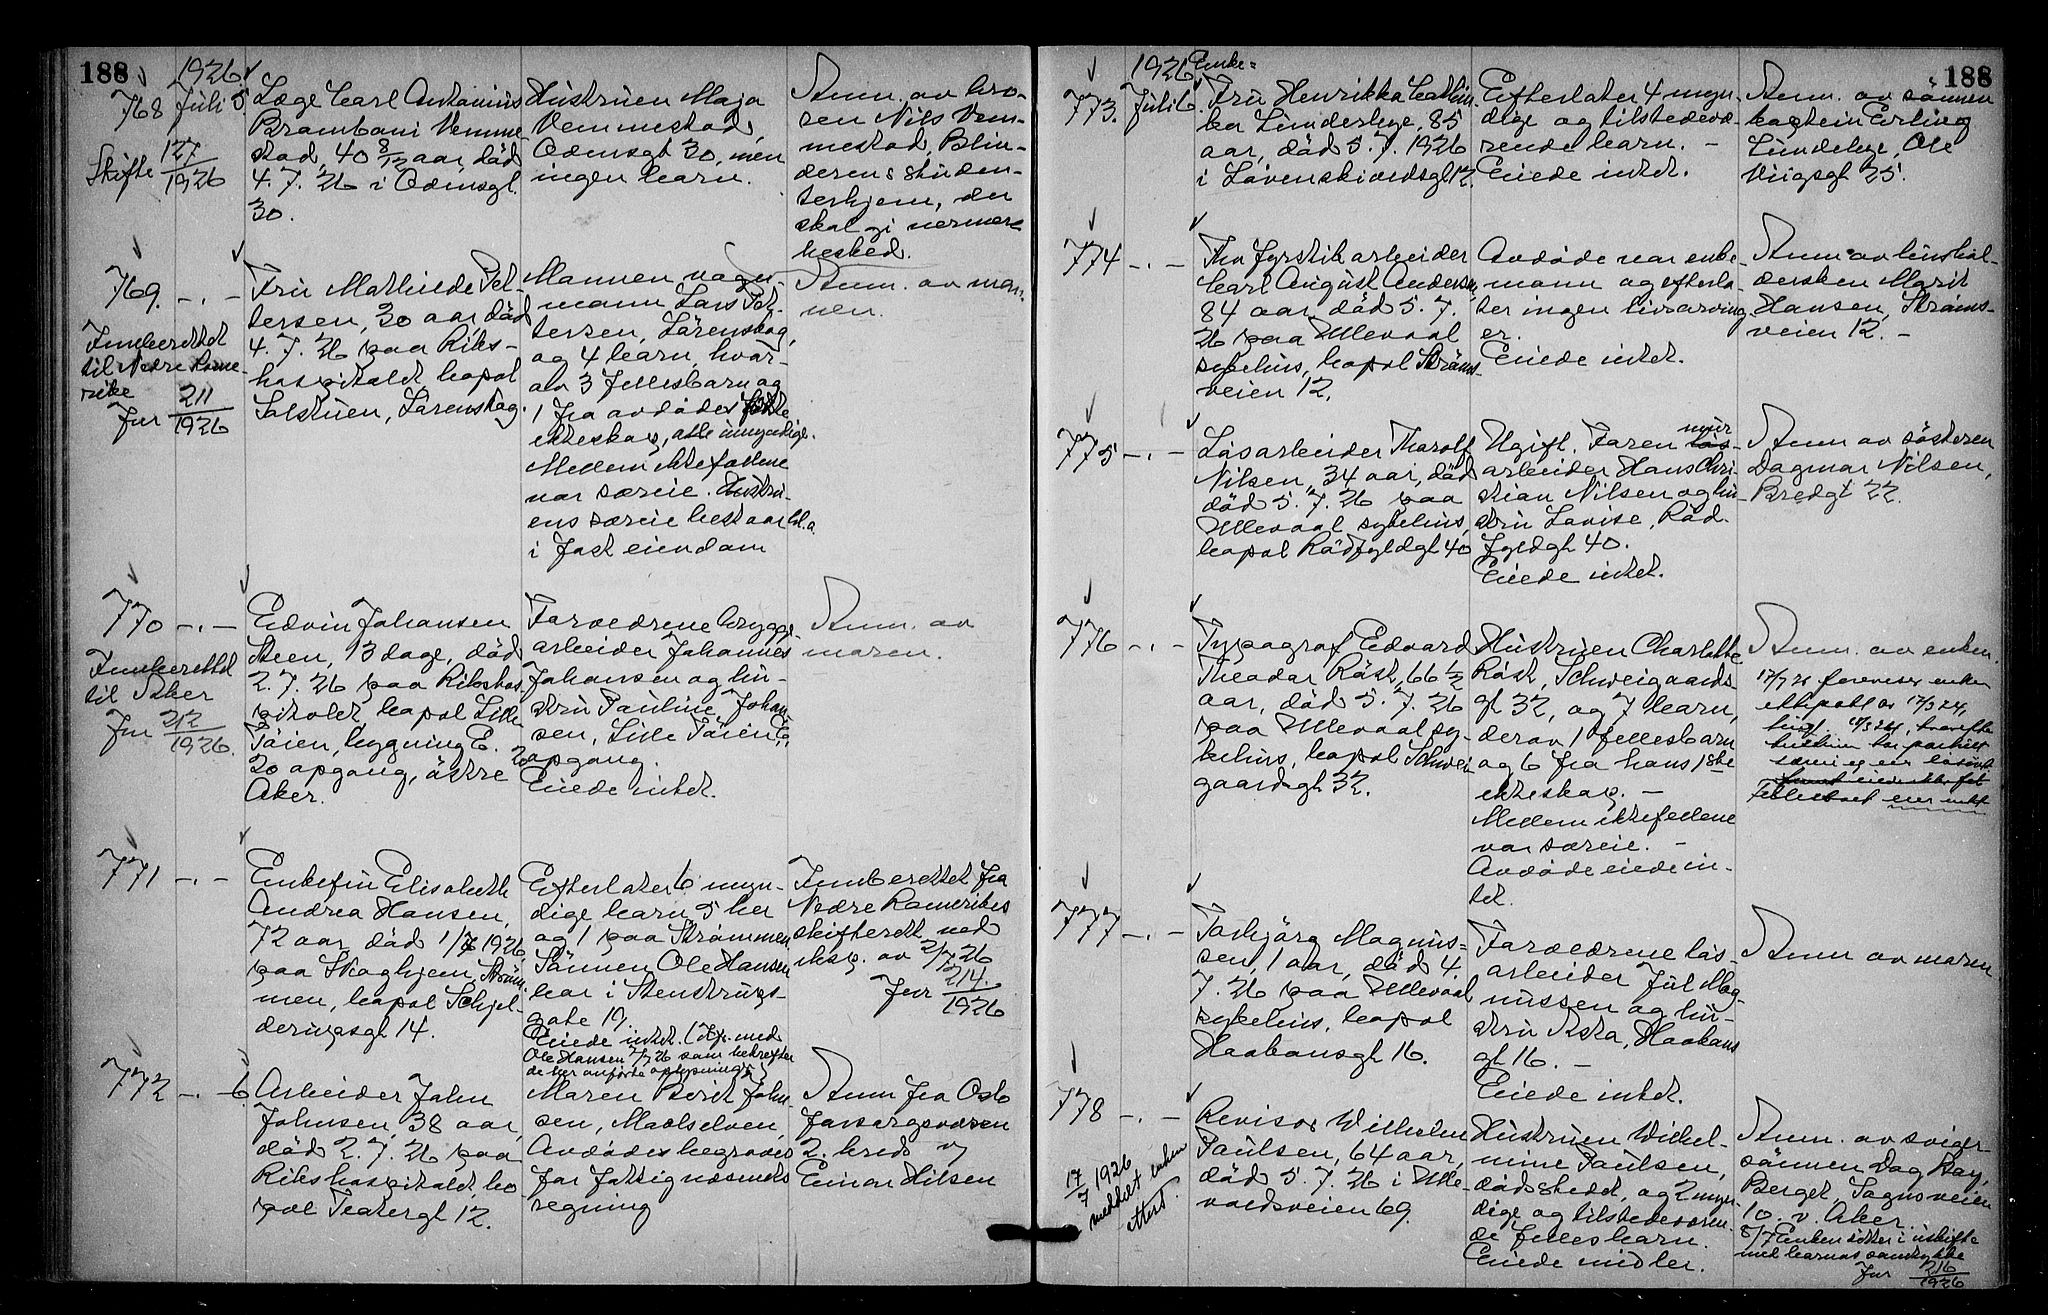 188
1926
768 Juli 5.
Skifte 127/1926
Læge Carl Antonius
Brambani Vemme
stad, 40 8/12 aar, död
4. 7. 26 i Odinsgt.
30.
Hustruen Maja
Vemmestad,
Odinsgt 30, men
ingen barn.
Anm. av bro-
ren Nils Vem-
mestad, Blin-
derens studen-
terhjem, der
skal gi nermere
besked.
769. -.-
Innberettet
til Nedre Rome-
rike
Jnr 211/1926
Fru Mathilde Pet-
tersen, 30 aar, död
4. 7. 26 paa Riks-
hospitalet, bopæl
Solstuen, Lörenskog.
Mannen vagn-
mann Lars Pet-
tersen, Lörenskog,
og 4 barn, hvor-
av 3 fellesbarn og
1 fra avdödes förste
ekteskap, alle umyndige.
Mellem ektefællene
var særeie. Hustru-
ens særeie bestaar bl.a.
i fast eiendom
Anm. av man-
nen.
770 -.-
Innberettet
til Aker
Jnr 212/1926.
Edvin Johansen
Steen, 13 dage, död
2. 7. 26 paa Rikshos-
pitalet, bopæl Lille
Töien, bygning E.
20 opgang, östre
Aker.
Forældrene brygge-
arbeider Johannes
Johansen og hu-
stru Pauline Johan
sen, Lille Töien E,
20 opgang.
Eiede intet.
Anm. av
moren.
771 -.-
Enkefru Elisabeth
Andrea Hansen,
72 aar, död 1/7 1926
paa Skoghjem, Ström-
men, bopæl Schjel-
derupsgt 14.
Efterlater 6 myn-
dige barn, 5 her
og 1 paa Strömmen.
Sönnen Ole Hansen
bor i Stenstrups-
gate 19.
Eiede intet. (Kf. med
Ole Hansen 7/7 26 som bekrefter
de her anförte oplysninger)
Innberettet fra
Nedre Romerikes
skifterett ved
eksp. av 2/7 26
Jnr 214./1926
772 -.- 6.
Arbeider John
Johnsen, 38 aar,
död 2. 7. 26 paa
Rikshospitalet, bo
pæl Teatergt 12.
Moren Berit John-
sen, Maalselven,
Avdödes begravet
for fattigvæsenets
regning
Anm fra Oslo
forsorgsvæsen
2. kreds v
Einar Hilsen
188
1926
773. Juli 6.
Enke=
Fru Henrikka Cathin-
ka Lundebye, 85
aar, död 5. 7. 1926
i Lövenskioldsgt 12.
Efterlater 4 myn-
dige og tilstedevæ-
rende barn. -
Eiede intet.
Anm. av sönnen
kaptein Erling
Lundebye, Ole
Vigsgt 25.
774 -.-
Fhv fyrstikarbeider
Carl August Andersen,
84 aar, död 5. 7.
26 paa Ullevaal
sykehus, bopæl Ströms-
veien 12.
Avdöde var enke-
mann og efterla-
ter ingen livsarving-
er.
Eiede intet.
Anm. av hushol-
dersken Marit
Hansen, Ströms-
veien 12. -
775 -.-
Lösarbeider Thorolf
Nilsen, 34 aar, död
död 5. 7. 26 paa
Ullevaal sykehus,
bopæl Rödfyldgt 40
Ugift. Faren mur
arbeider Hans Chri-
stian Nilsen og hu-
stru Lovise, Röd-
fyldgt 40.
Eiede intet.
Anm av sösteren
Dagmar Nilsen,
Bredgt 22.
776 -.-
Typograf Edvard
Theodor Röst, 66 1/2
aar, död 5. 7. 26
paa Ullevaal sy-
kehus, bopæl Schwei
gaardsgt 32.
Hustruen Charlotte
Röst, Schweigaards-
gt 32, og 7 barn,
derav 1 fellesbarn
og 6 fra hans 1ste
ekteskap. -
Mellem ektefellene
var særeie. -
Avdöde eiede in-
tet.
Anm. av enken.
17/7 26 forevises enken
ektepakt av 17/3 24,
tingl. 18/3 24, hvorefter
hustruen har partielt
særeie
Fellesboet eier intet
777 -.-
Torbjörg Magnus-
sen, 1 aar, död 4.
7. 26 paa Ullevaal
sykehus, bopæl
Haakonsgt 16.
Forældrene lös-
arbeider Jul Mag-
nussen og hu-
stru Asta, Haakons
gt 16. -
Eiede intet.
Anm av moren
778 -.-
17/7 1926
meddelt enken
attest.
Revisor Wilhelm
Paulsen, 64 aar,
död 5. 7. 26 i Ulle-
vaalsveien 69.
Hustruen Wilhel-
mine Paulsen,
dödsstedet, og 2 myn-
dige og tilstedeværen-
de fellesbarn.
Eiede midler.
Anm. av sviger
sönnen Dag Bay,
Berget, Sognsveien
10. v. Aker.
8/7 Enken sitter i uskifte
med barnas samtykke
Jnr 216/1926